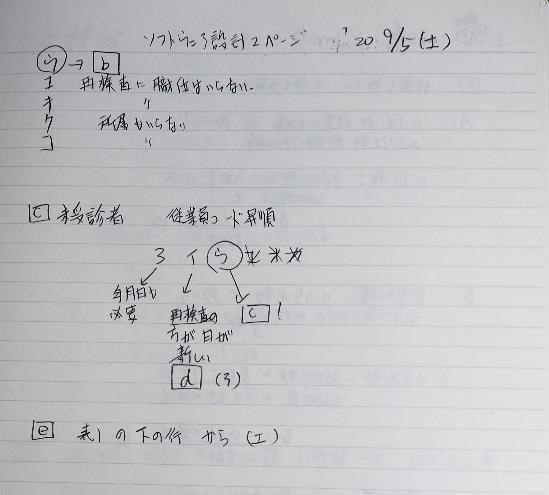 ソフトらへん設計2ページ '20 9/5(土)
う → b
エ 再検査に職位はいらない
オ 〃
ク 所属がいらない
コ 〃
c 未受診者 従業員コード昇順
ろ イ う
年月日も必要
再検査の方が日が新しい
c !
d (ろ)
e 表1の下の行から(エ)